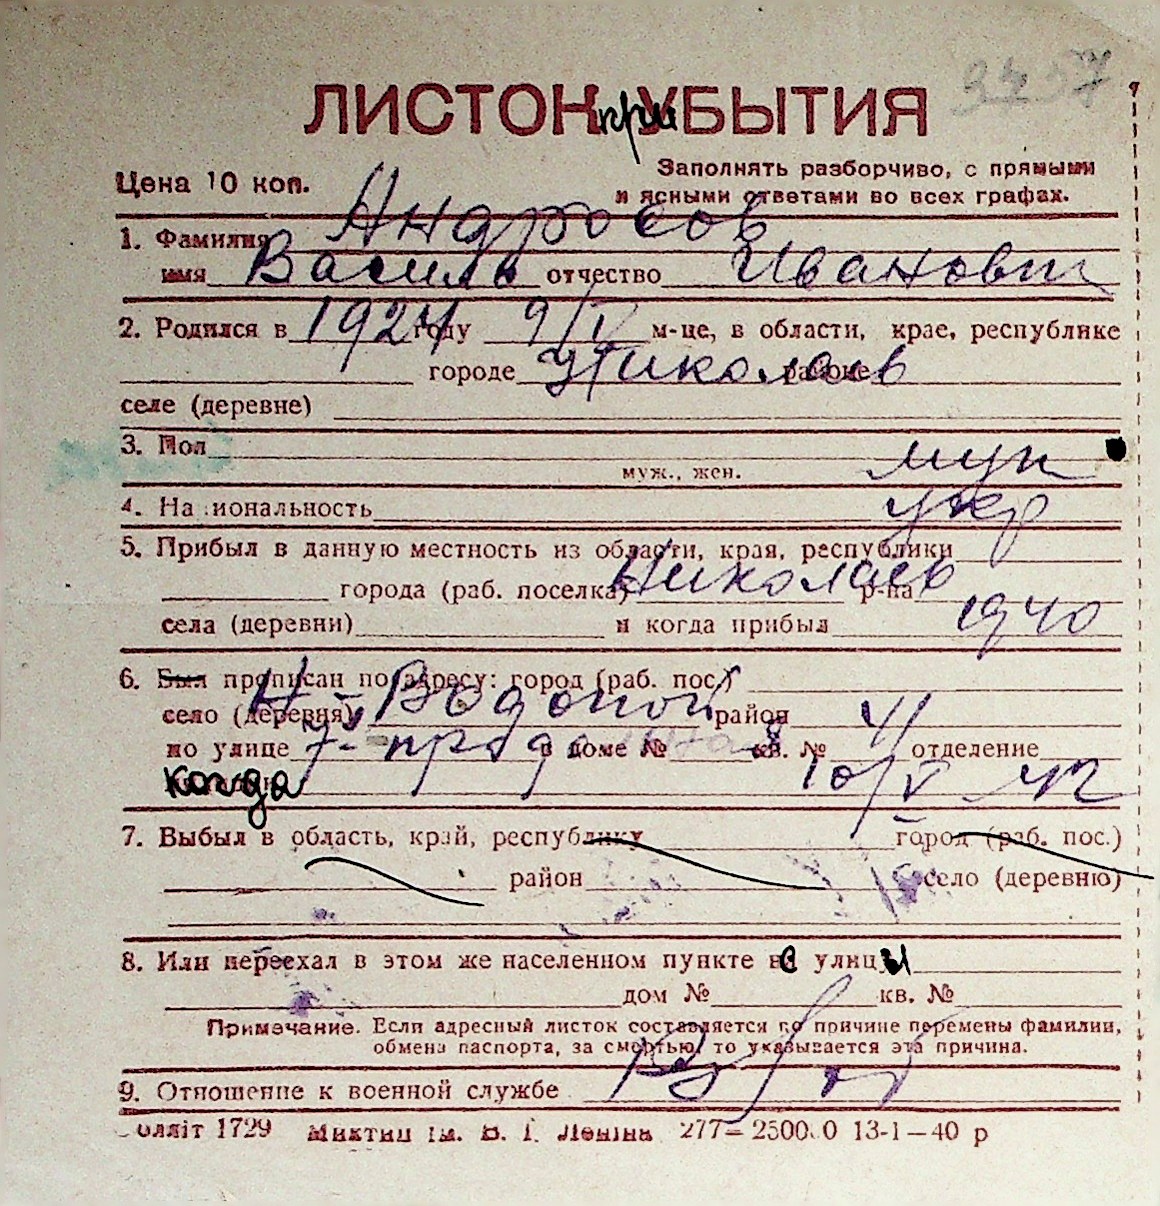 ЛИСТОК при УБЫТИЯ
Цена 10 коп.
Заполнять разборчиво, с прямыми
и ясными ответами во всех графах.
1. Фамилия Андросов
имя Василь отчество Иванович
2. Родился в 1927 году 9/IV м-це, в области, крае, республике
городе Николаев районе
селе (деревне)
3. Пол муж
муж., жен.
4. Национальность укр
5. Прибыл в данную местность из области, края, республики
города (раб. поселка) Николаев р-на
села (деревни) и когда прибыл 1940
6. Был прописан по адресу: город (раб. пос.)
село (деревня) Водопой район
по улице 7- прод в доме № кв. № 41 отделение
когда 10/V 42
7. Выбыл в область, край, республику город (раб. пос.)
район село (деревню)
8. Или переехал в этом же населенном пункте с улицы
дом № кв. №
Примечание. Если адресный листок составляется по причине перемены фамилии,
обмена паспорта, за смертью, то указывается эта причина.
9. Отношение к военной службе
1729 ім. В. І. Леніна 277— 13-1—40 р